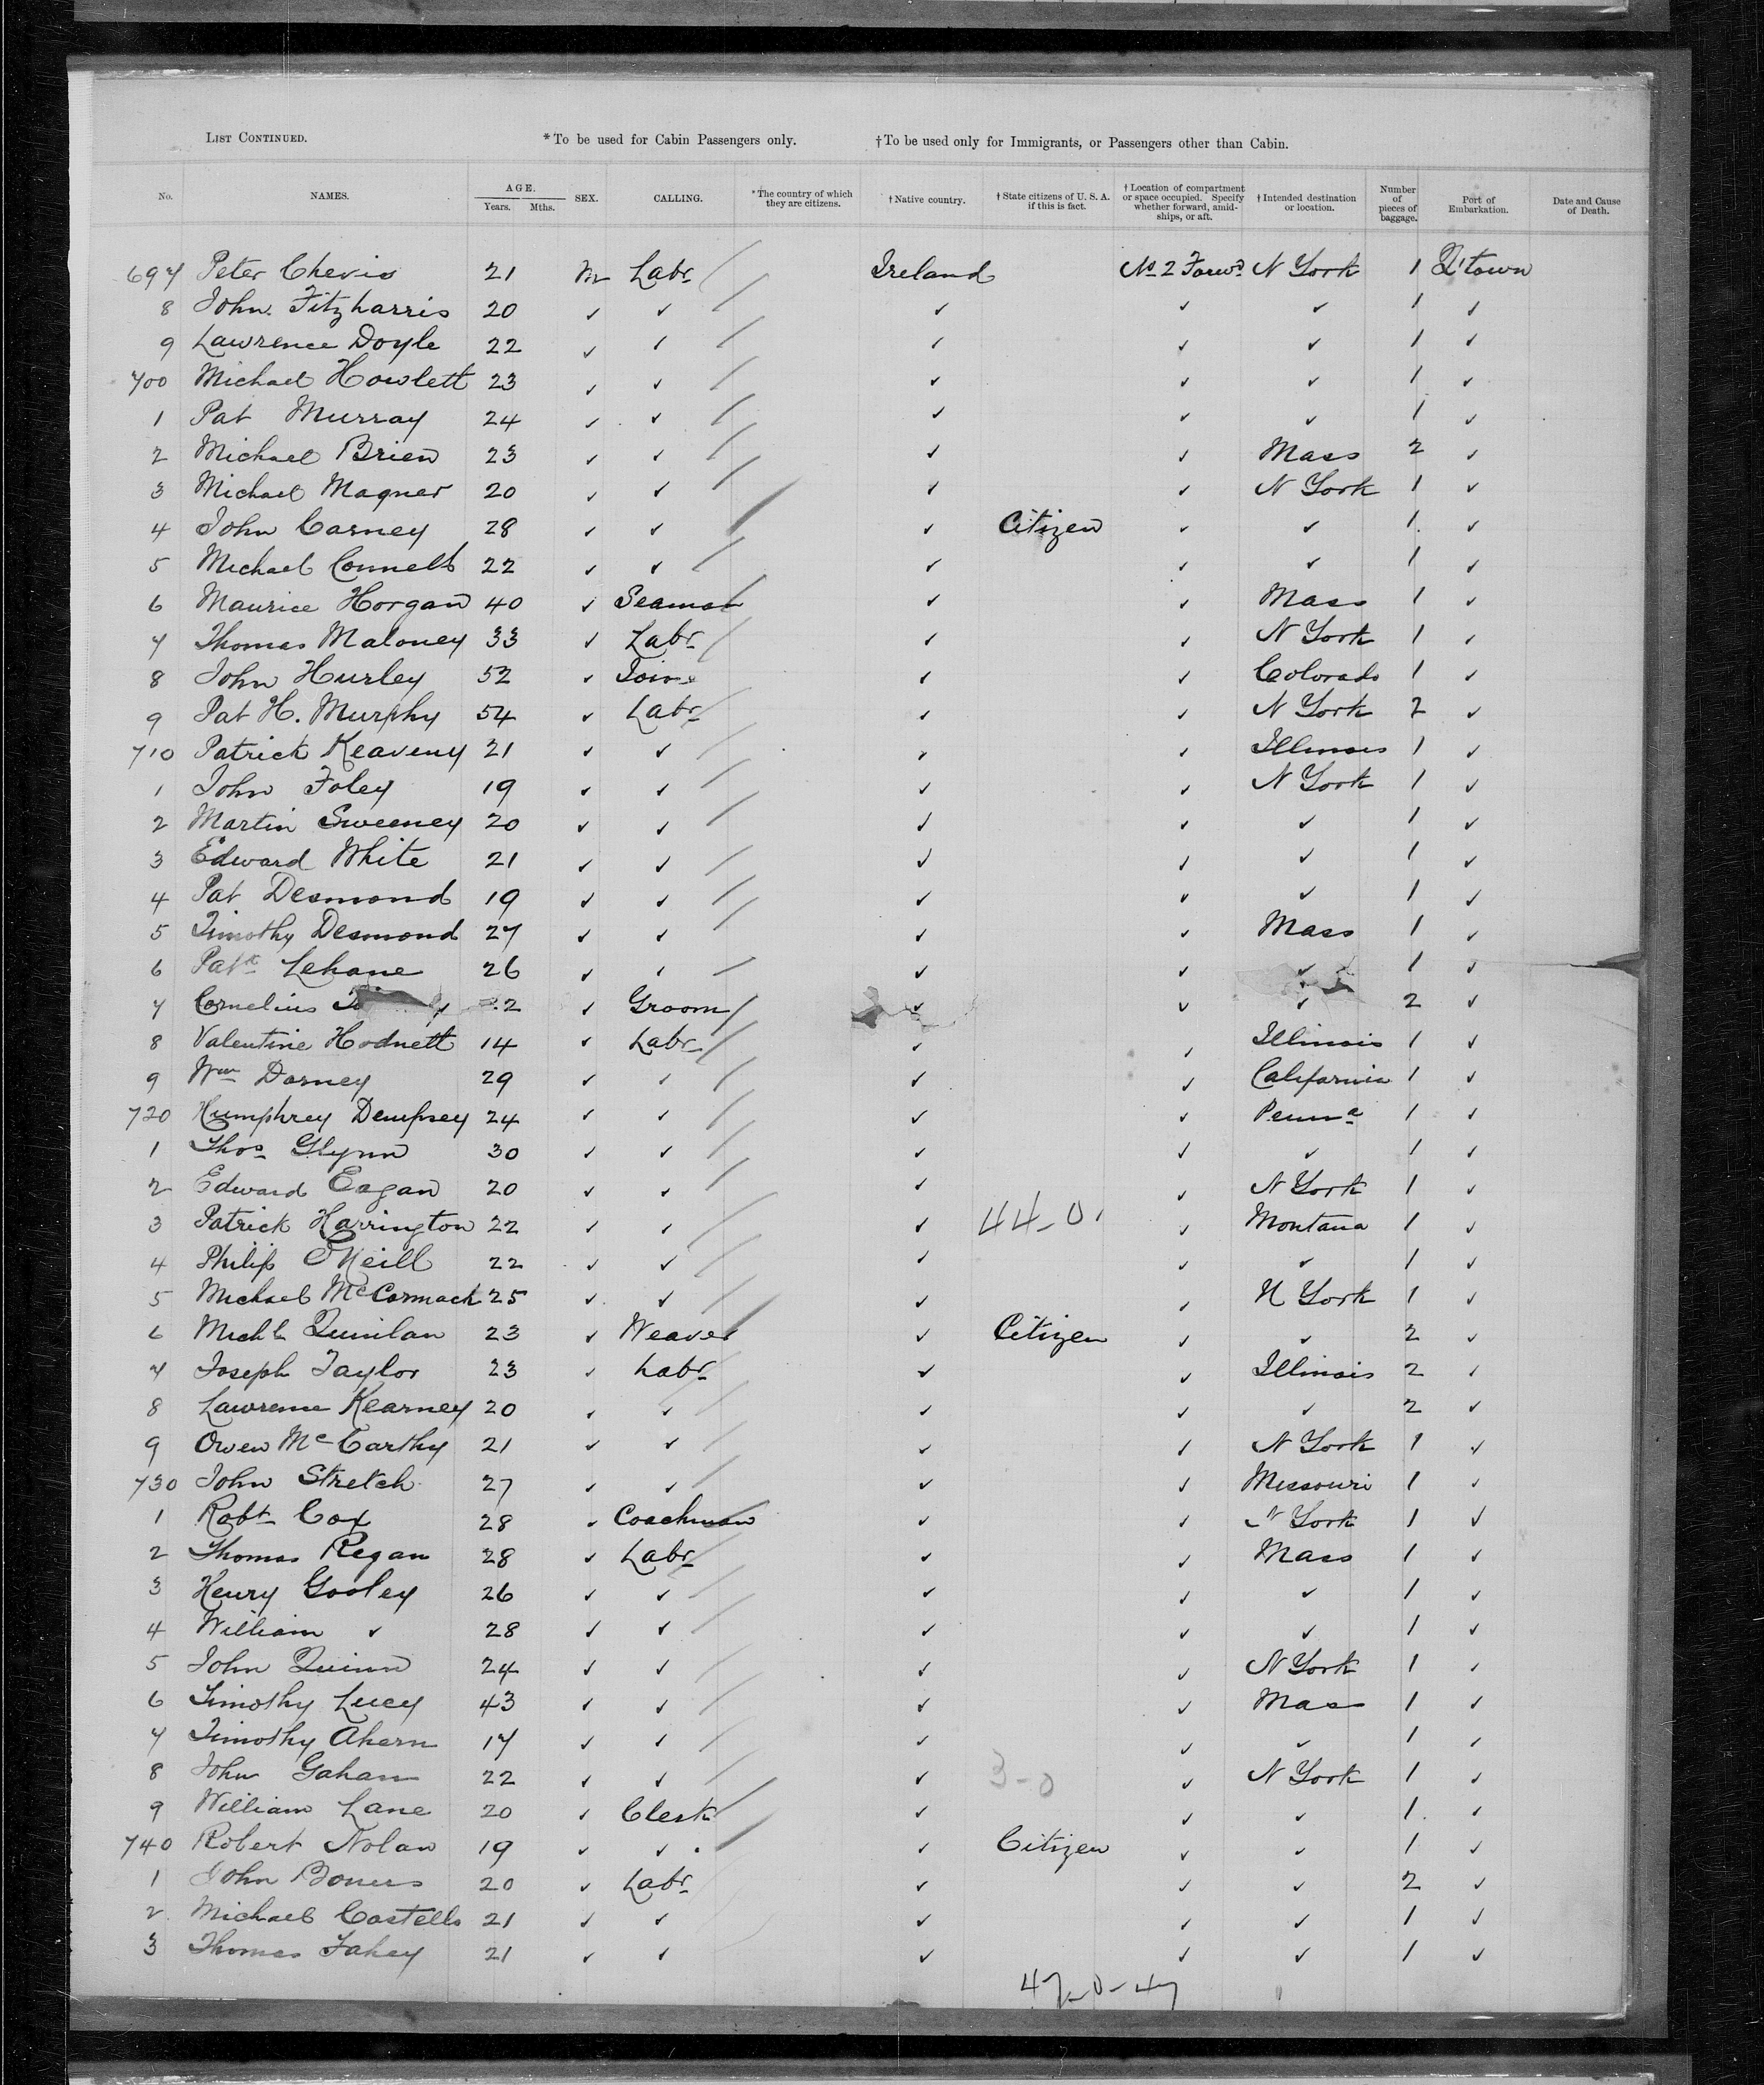 LIST CONTINUED. * To be used for Cabin Passengers only. † To be used only for Immigrants, or Passengers other than Cabin.
No. NAMES. AGE. Years. Mths. SEX. CALLING. * The country of which they are citizens. † Native country. † State citizens of U. S. A. if this is fact. † Location of compartment or space occupied. Specify whether forward, amidships, or aft. † Intended destination or location. Number of pieces of baggage. Port of Embarkation. Date and Cause of Death.
697 Peter Chevis 21 M Labr Ireland No 2 Forwd N York 1 Q'town
8 John Fitzharris 20 ✓ ✓ ✓ ✓ ✓ 1 ✓
9 Lawrence Doyle 22 ✓ ✓ ✓ ✓ ✓ 1 ✓
700 Michael Howlett 23 ✓ ✓ ✓ ✓ ✓ 1 ✓
1 Pat Murray 24 ✓ ✓ ✓ ✓ ✓ 1 ✓
2 Michael Brien 23 ✓ ✓ ✓ ✓ Mass 2 ✓
3 Michael Magner 20 ✓ ✓ ✓ ✓ N York 1 ✓
4 John Carney 28 ✓ ✓ ✓ Citizen ✓ ✓ 1 ✓
5 Michael Connell 22 ✓ ✓ ✓ ✓ ✓ 1 ✓
6 Maurice Horgan 40 ✓ Seaman ✓ ✓ Mass 1 ✓
7 Thomas Maloney 33 ✓ Labr ✓ ✓ N York 1 ✓
8 John Hurley 52 ✓ ✓ ✓ Colorado 1 ✓
9 Pat H. Murphy 54 ✓ Labr ✓ ✓ N York 2 ✓
710 Patrick Keaveny 21 ✓ ✓ ✓ ✓ Illinois 1 ✓
1 John Foley 19 ✓ ✓ ✓ ✓ N York 1 ✓
2 Martin Sweeney 20 ✓ ✓ ✓ ✓ ✓ 1 ✓
3 Edward White 21 ✓ ✓ ✓ ✓ ✓ 1 ✓
4 Pat Desmond 19 ✓ ✓ ✓ ✓ ✓ 1 ✓
5 Timothy Desmond 27 ✓ ✓ ✓ ✓ Mass 1 ✓
6 Patk Lehane 26 ✓ ✓ ✓ ✓ ✓ 1 ✓
7 Cornelius ✓ Groom ✓ ✓ ✓ 2 ✓
8 Valentine Hodnett 14 ✓ Labr ✓ ✓ Illinois 1 ✓
9 Wm Dorney 29 ✓ ✓ ✓ ✓ California 1 ✓
720 Humphrey Dempsey 24 ✓ ✓ ✓ ✓ Penna 1 ✓
1 Thos Glynn 30 ✓ ✓ ✓ ✓ ✓ 1 ✓
2 Edward Eagan 20 ✓ ✓ ✓ ✓ N York 1 ✓
3 Patrick Harrington 22 ✓ ✓ ✓ 44-0 ✓ Montana 1 ✓
4 Philip O'Neill 22 ✓ ✓ ✓ ✓ ✓ 1 ✓
5 Michael McCormack 25 ✓ ✓ ✓ ✓ N York 1 ✓
6 Michl Quinlan 23 ✓ Weaver ✓ Citizen ✓ ✓ 2 ✓
7 Joseph Taylor 23 ✓ Labr ✓ ✓ Illinois 2 ✓
8 Lawrence Kearney 20 ✓ ✓ ✓ ✓ ✓ 2 ✓
9 Owen McCarthy 21 ✓ ✓ ✓ ✓ N York 1 ✓
730 John Stretch 27 ✓ ✓ ✓ ✓ Missouri 1 ✓
1 Robt Cox 28 ✓ Coachman ✓ ✓ N York 1 ✓
2 Thomas Regan 28 ✓ Labr ✓ ✓ Mass 1 ✓
3 Henry Gooley 26 ✓ ✓ ✓ ✓ ✓ 1 ✓
4 William ✓ 28 ✓ ✓ ✓ ✓ ✓ 1 ✓
5 John Quinn 24 ✓ ✓ ✓ ✓ N York 1 ✓
6 Timothy Lucy 43 ✓ ✓ ✓ ✓ Mass 1 ✓
7 Timothy Ahern 17 ✓ ✓ ✓ ✓ ✓ 1 ✓
8 John Gahan 22 ✓ ✓ ✓ 3-0 ✓ N York 1 ✓
9 William Lane 20 ✓ Clerk ✓ ✓ ✓ 1 ✓
740 Robert Nolan 19 ✓ ✓ ✓ Citizen ✓ ✓ 1 ✓
1 John 20 ✓ Labr ✓ ✓ ✓ 2 ✓
2 Michael Costello 21 ✓ ✓ ✓ ✓ ✓ 1 ✓
3 Thomas Fahey 21 ✓ ✓ ✓ ✓ ✓ 1 ✓
47-0-47